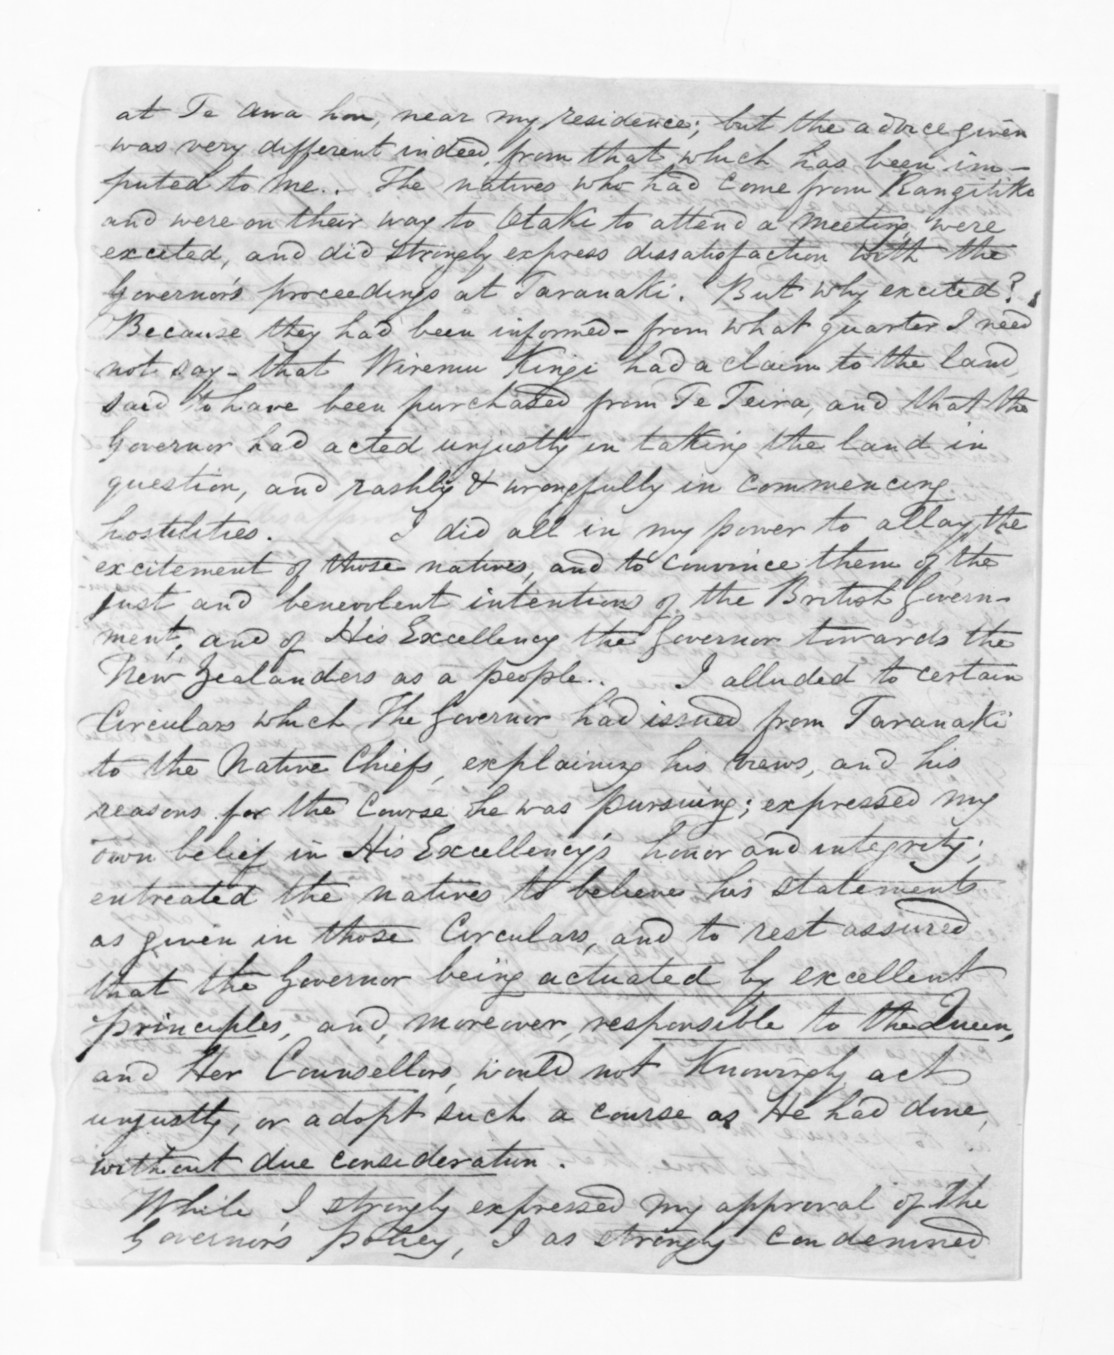 at Te Awa hou, near my residence; but the advice given
was very different indeed from that which has been im-
puted to me.. The natives who had come from Rangitiki
and were on their way to Otaki to attend a meeting were
excited, and did strongly express dissatisfaction with the
Governor's proceedings at Taranaki. But why excited?
Because they had been informed - from what quarter I need
not say - that Wiremu Kingi had a claim to the land,
said to have been purchased from Te Teira, and that the
Governor had acted unjustly in taking the land in
question, and rashly & wrongfully in commencing
hostilities. I did all in my power to allay the
excitement of those natives, and to convince them of the
just and benevolent intentions of the British Govern-
ment, and of His Excellency the Governor towards the
New Zealanders as a people.. I alluded to certain
Circulars which The Governor had issued from Taranaki
to the Native Chiefs, explaining his views, and his
reasons for the course he was pursuing; expressed my
own belief in His Excellency's honor and integrity;
entreated the natives to believe his statements
as given in those Circulars, and to rest assured
that the Governor being actuated by excellent
principles, and, moreover, responsible to the Queen,
and Her Counsellors, would not knowingly act
unjustly, or adopt such a course as He had done,
without due consideration.
While I strongly expressed my approval of the
Governor's policy, I as strongly condemned